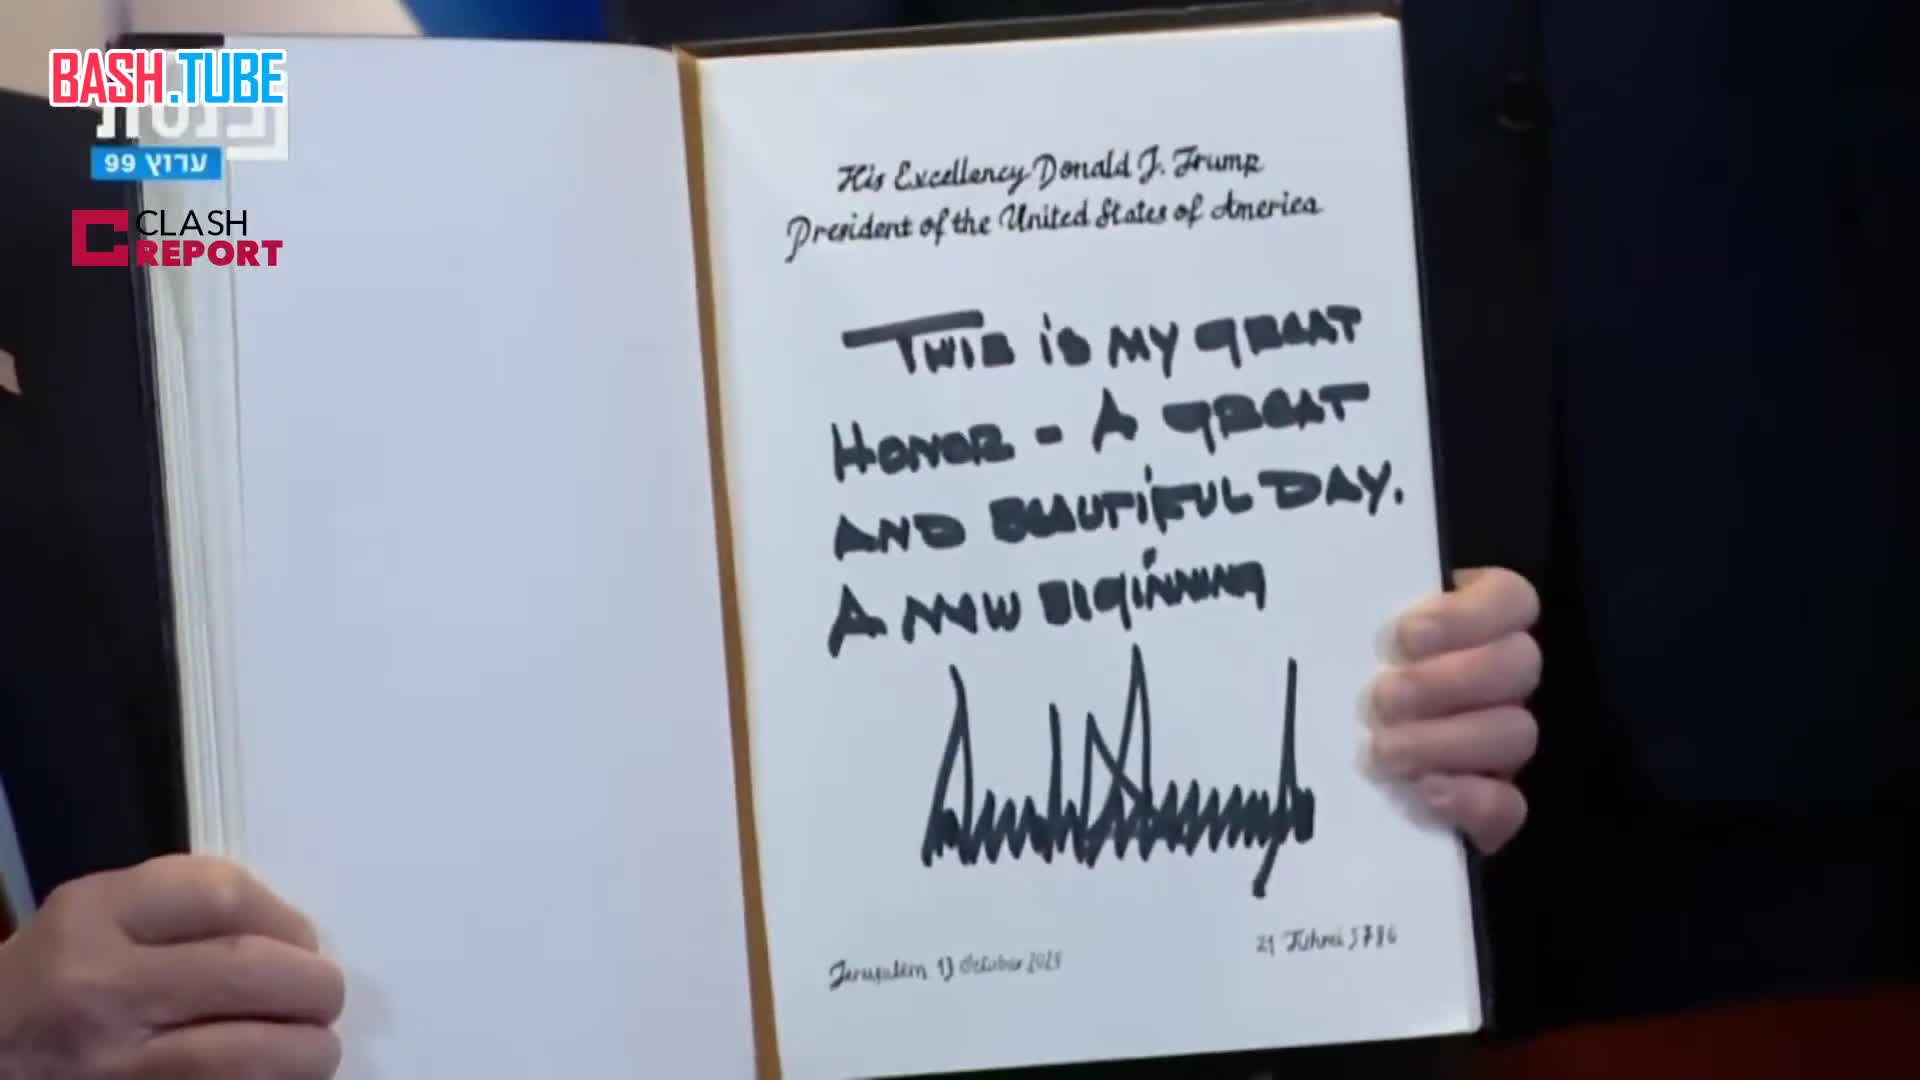 BASH.TUBE
כנסת
ערוץ 99
CLASH
REPORT
His Excellency Donald J. Trump
President of the United States of America
THIS IS MY GREAT
HONOR - A GREAT
AND BEAUTIFUL DAY.
A NEW BEGINNING
Jerusalem 13 October 2025
21 Tishrei 5786